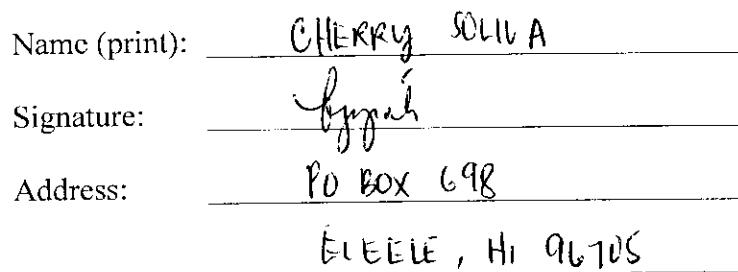 Name (print): CHERRY SOLIVA
Signature:
Address: PO BOX 698
ELEELE, HI 96705